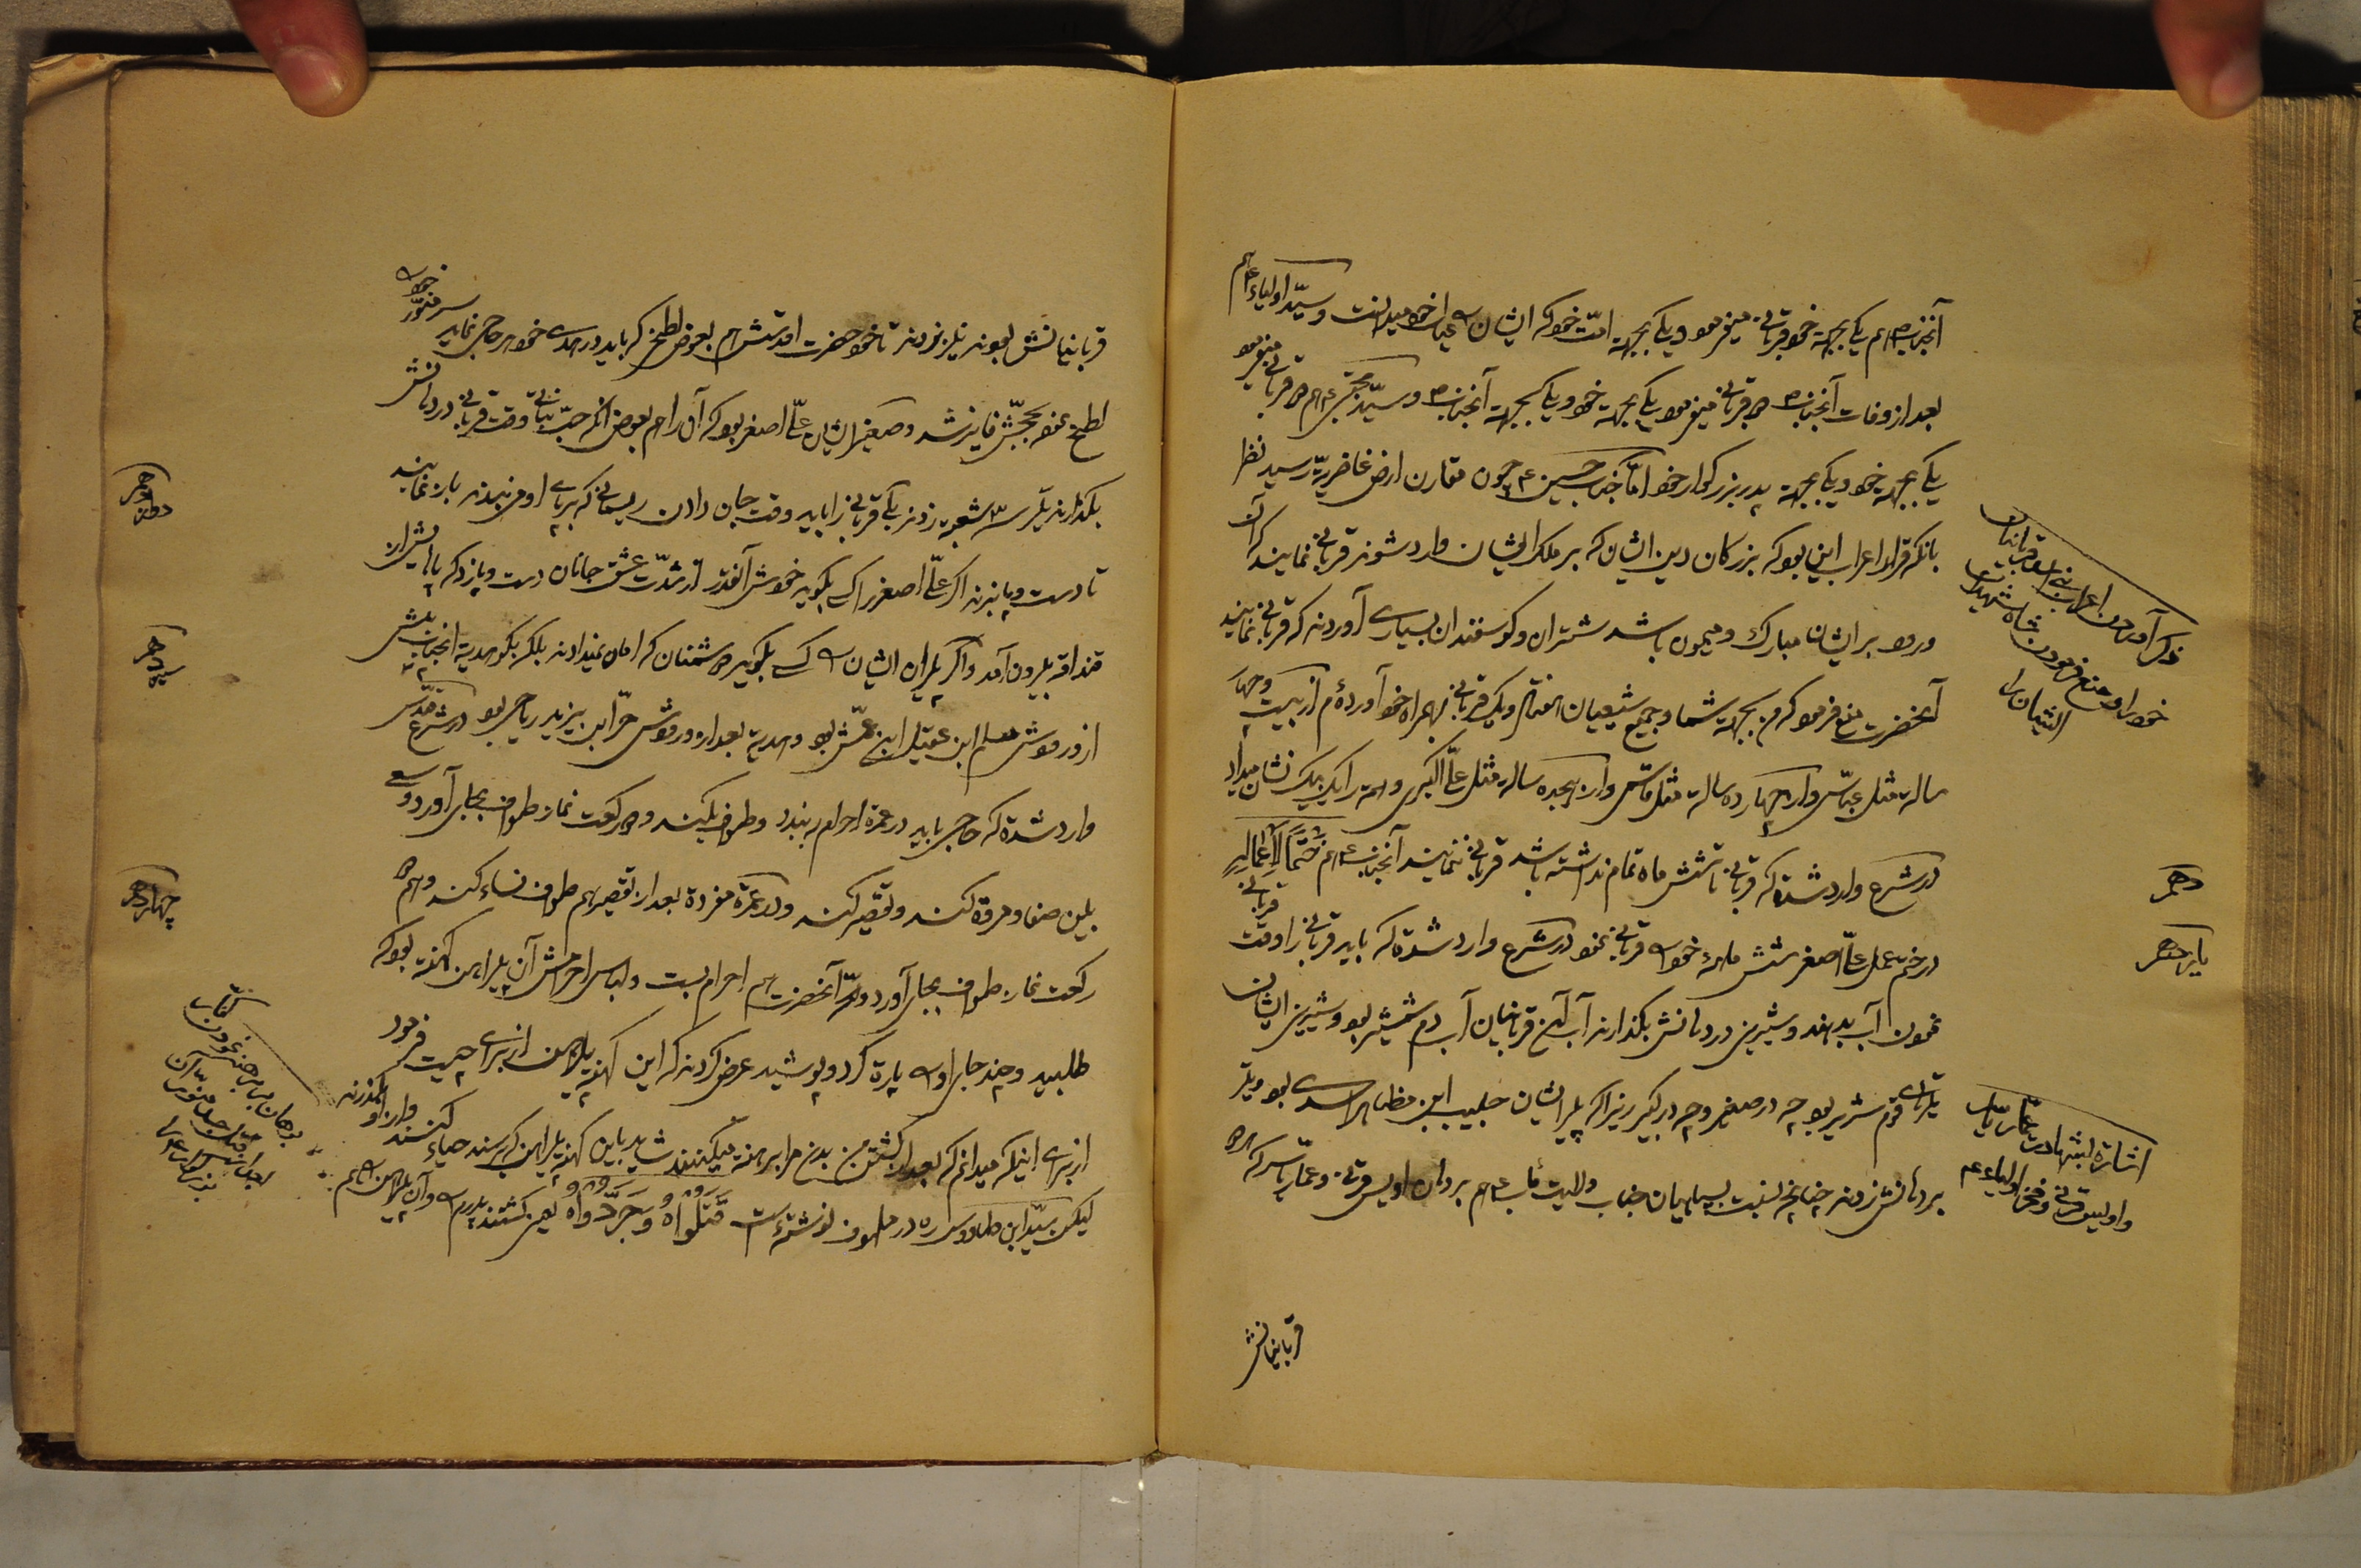 آنجناب ص هم یکی بجهة خود قربانی میفرمود و یکی بجهة امّت خود که ایشان را عیال خود میدانست و سیّد اولیاء ع هم
بعد از وفات آنجناب ص دو قربانی میفرمود یکی بجهة خود و یکی بجهة آنجناب ص و سیّد مجتبی ع هم دو قربانی میفرمود
یکی بجهة خود و یکی بجهة پدر بزرکوار خود امّا جناب حسین ع چون مقارن ارض غاضریّه رسید نظر
بانکه قرار اعراب این بود که بزرکان دین ایشان که بر ملک ایشان وارد شوند قربانی نمایند که آن
ورود بر ایشان مبارک و میمون باشد شتران و کوسفندان بسیاری آوردند که قربانی نمایند
آنحضرت منع فرمود که من بجهة شما و جمیع شیعیان هفتاد و یک قربانی بهمراه خود آورده‌ام از بیست و چهار
ساله مثل عبّاس و از چهارده ساله مثل قاسم و از هیجده ساله مثل علیّ اکبر و همه را یک بیک نشان میداد
در شرع وارد شده که قربانی تا شش ماه تمام نداشته باشد قربانی ننمایند آنجناب ع هم
در ختم عمل علیّ اصغر شش ماههٔ خود را قربانی نمود در شرع وارد شده که باید قربانی را وقت قربانی
نمودن آب بدهند و شیرینی در دهانش بکذارند آب این قربانیان آب دم شمشیر بود و شیرینی ایشان
تیرهای قوم شریر بود چه در صغیر و چه در کبیر زیرا که پیر ایشان حبیب ابن مظاهر اسدی بود و تیر
بر دهانش زدند چنانچه نسبت بسپاهیان جناب ولایت مآب ع هم بر دهان اویس قرنی و عمّار یاسر که از
قربانیانش
ذکر آمدن اعراب
خود را و منع فرمودن شاه شهیدان
ایشان را
دهم
یازدهم
اشاره بشهادت عمّار یاسر
و اویس قرنی و فخر اولیاء عم
قربانیانش بودند تیر زدند تا خود حضرت اقدسش هم بعوض لطخی که باید در هدی خود هر حاجی نماید سر منوّر خود را
لطخ نمود بحجّش فایز شد و صغیر ایشان علیّ اصغر بود که آن را هم بعوض انکه حبّ نباتی وقت قربانی در دهانش
بکذارند تیر سه شعبه زدند یکی قربانی را باید وقت جان دادن ریسمانی که بر پای او می‌بندند باز نمایند
تا دست و پا بزند اکر علیّ اصغر را کسی بکوید خودش آنقدر از شدّت عشق جانان دست و پا زد که پاهایش از
قنداقه بیرون آمد و اکر پیران ایشان را کسی بکوید دشمنان که امان نمیدادند بلکه بکو هدیه انجناب پیش
از ورودش مسلم ابن عقیل ابن عمّش بود و هدیه بعد از ورودش حرّ ابن یزید ریاحی بود در شرع مقدّس
وارد شده که حاجی باید در عمره احرام ببندد و طواف بکند و دو رکعت نماز طواف بجای آورد و سعی
بین صفا و مروه کند و تقصیر کند و در عمره مفرده بعد از تقصیر هم طواف نساء کند و هم دو
رکعت نماز طواف بجای آورد و آنحضرت هم احرام بست و لباس احرامش آن پیراهن کهنه بود که
طلبید و چند جای او را پاره کرد و پوشید عرض کردند که این کهنه پیراهن از برای چیست فرمود
از برای اینکه میدانم که بعد از کشتن من بدن مرا برهنه میکنند شاید باین کهنه پیراهن که رسند حیاء کنند و از او بکذرند
لیکن سیّد ابن طاووس ره در لهوف نوشته است قَتَلُوهُ وَجَرَّدُوهُ یعنی کشتند پدرم را و آن پیراهن را هم
دوازدهم
سیزدهم
چهاردهم